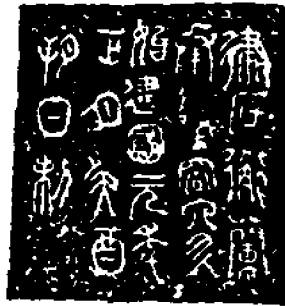 律石衡蘭
承水容六升
始建國元年
正月癸酉
朔日制